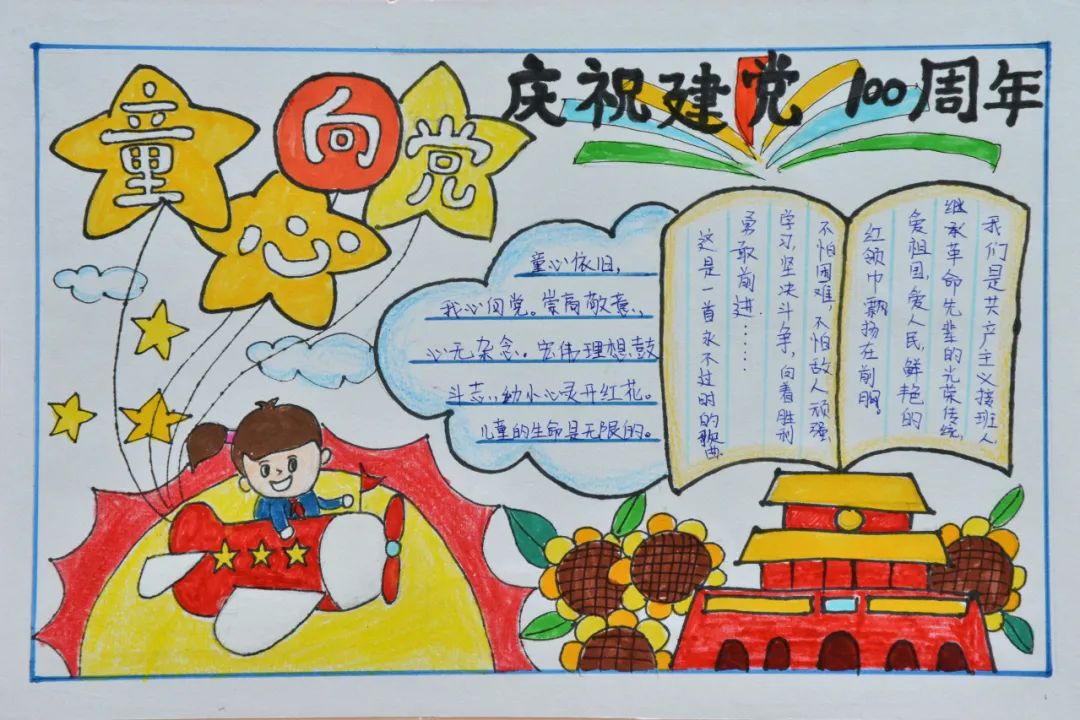 童心向党
庆祝建党100周年
童心依旧,
我心向党。崇高敬意,
心无杂念。宏伟理想鼓
斗志,幼小心灵开红花。
儿童的生命是无限的。
我们是共产主义接班人
继承革命先辈的光荣传统,
爱祖国,爱人民,鲜艳的
红领巾飘扬在前胸。
不怕困难,不怕敌人顽强
学习,坚决斗争,向着胜利
勇敢前进……
这是一首永不过时的歌曲.